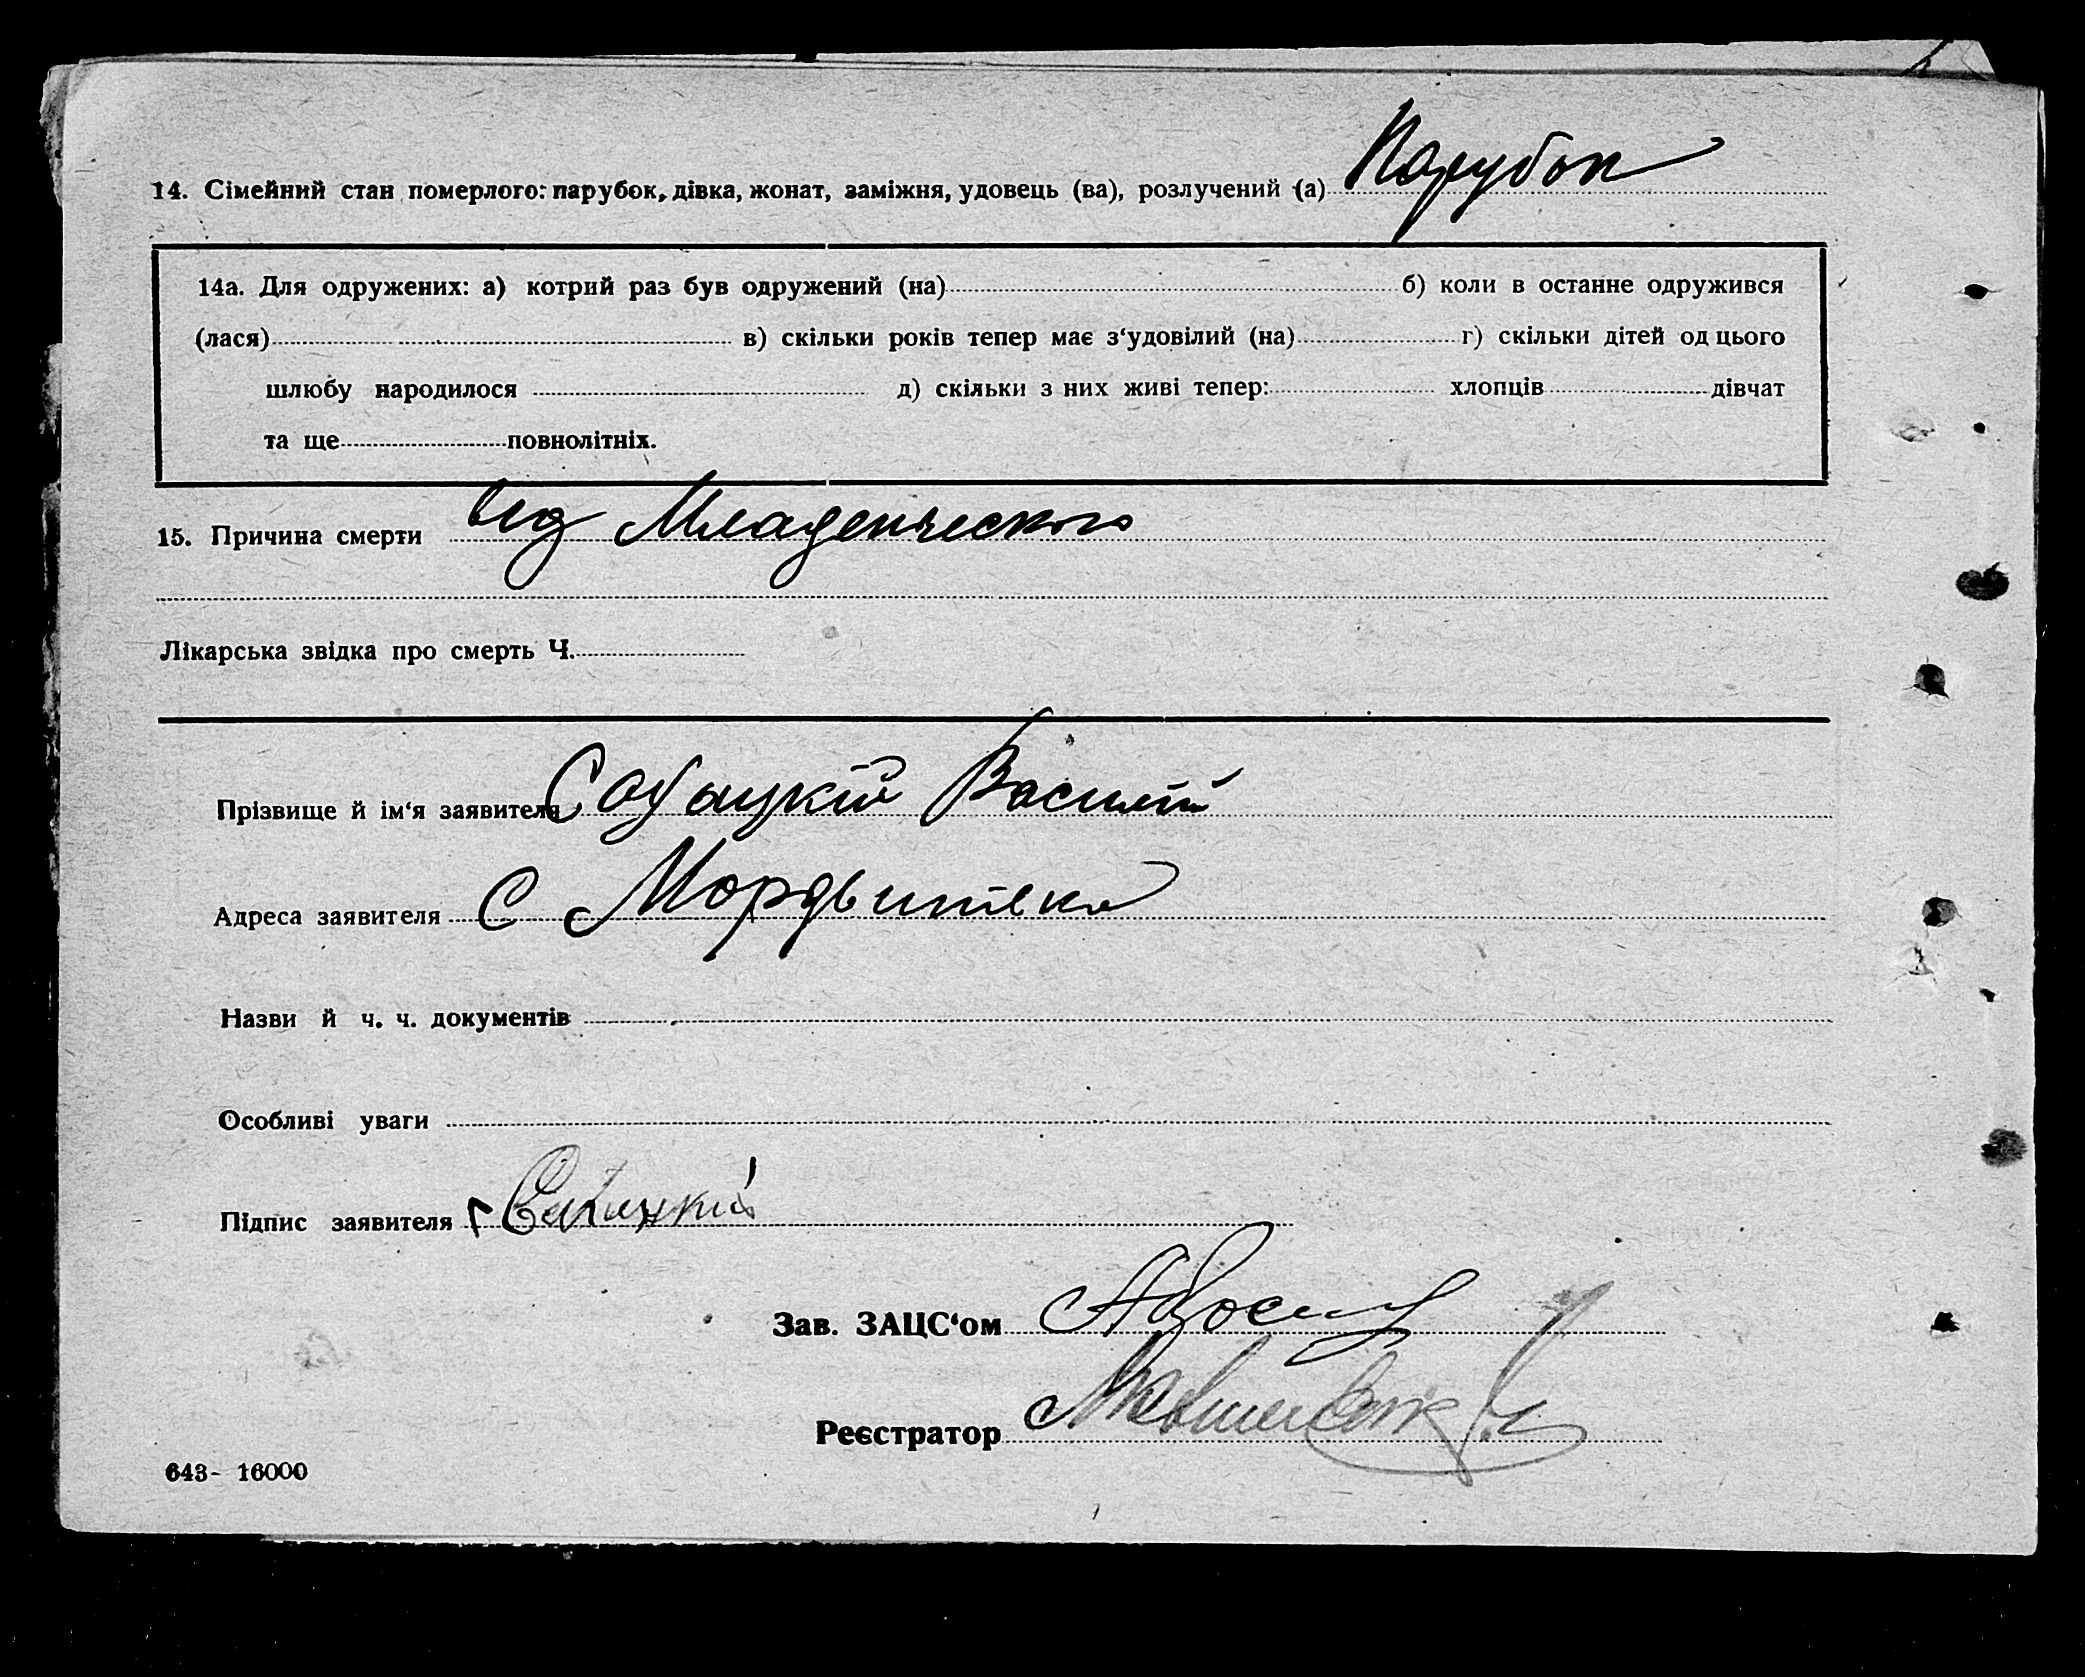 14. Сімейний стан померлого: парубок, дівка, жонат, заміжня, удовець (ва), розлучений (а) Парубок
14а. Для одружених: а) котрий раз був одружений (на) б) коли в останне одружився
(лася) в) скільки років тепер має з‘удовілий (на) г) скільки дітей од цього
шлюбу народилося д) скільки з них живі тепер: хлопців дівчат
та ще повнолітніх.
15. Причина смерти від Младенческого
Лікарська звідка про смерть Ч.
Прізвище й ім‘я заявителя Василий
Адреса заявителя С
Назви й ч. ч. документів
Особливі уваги
Підпис заявителя
Зав. ЗАЦС‘ом
Реєстратор
643- 16000